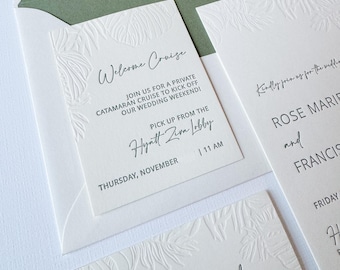 Welcome Cruise
JOIN US FOR A PRIVATE
CATAMARAN CRUISE TO KICK OFF
OUR WEDDING WEEKEND!
PICK UP FROM THE
Hyatt Ziva Lobby
THURSDAY, NOVEMBER | 11 AM
Kindly join us for the wedding
ROSE MARIE
and
FRANCIS
FRIDAY